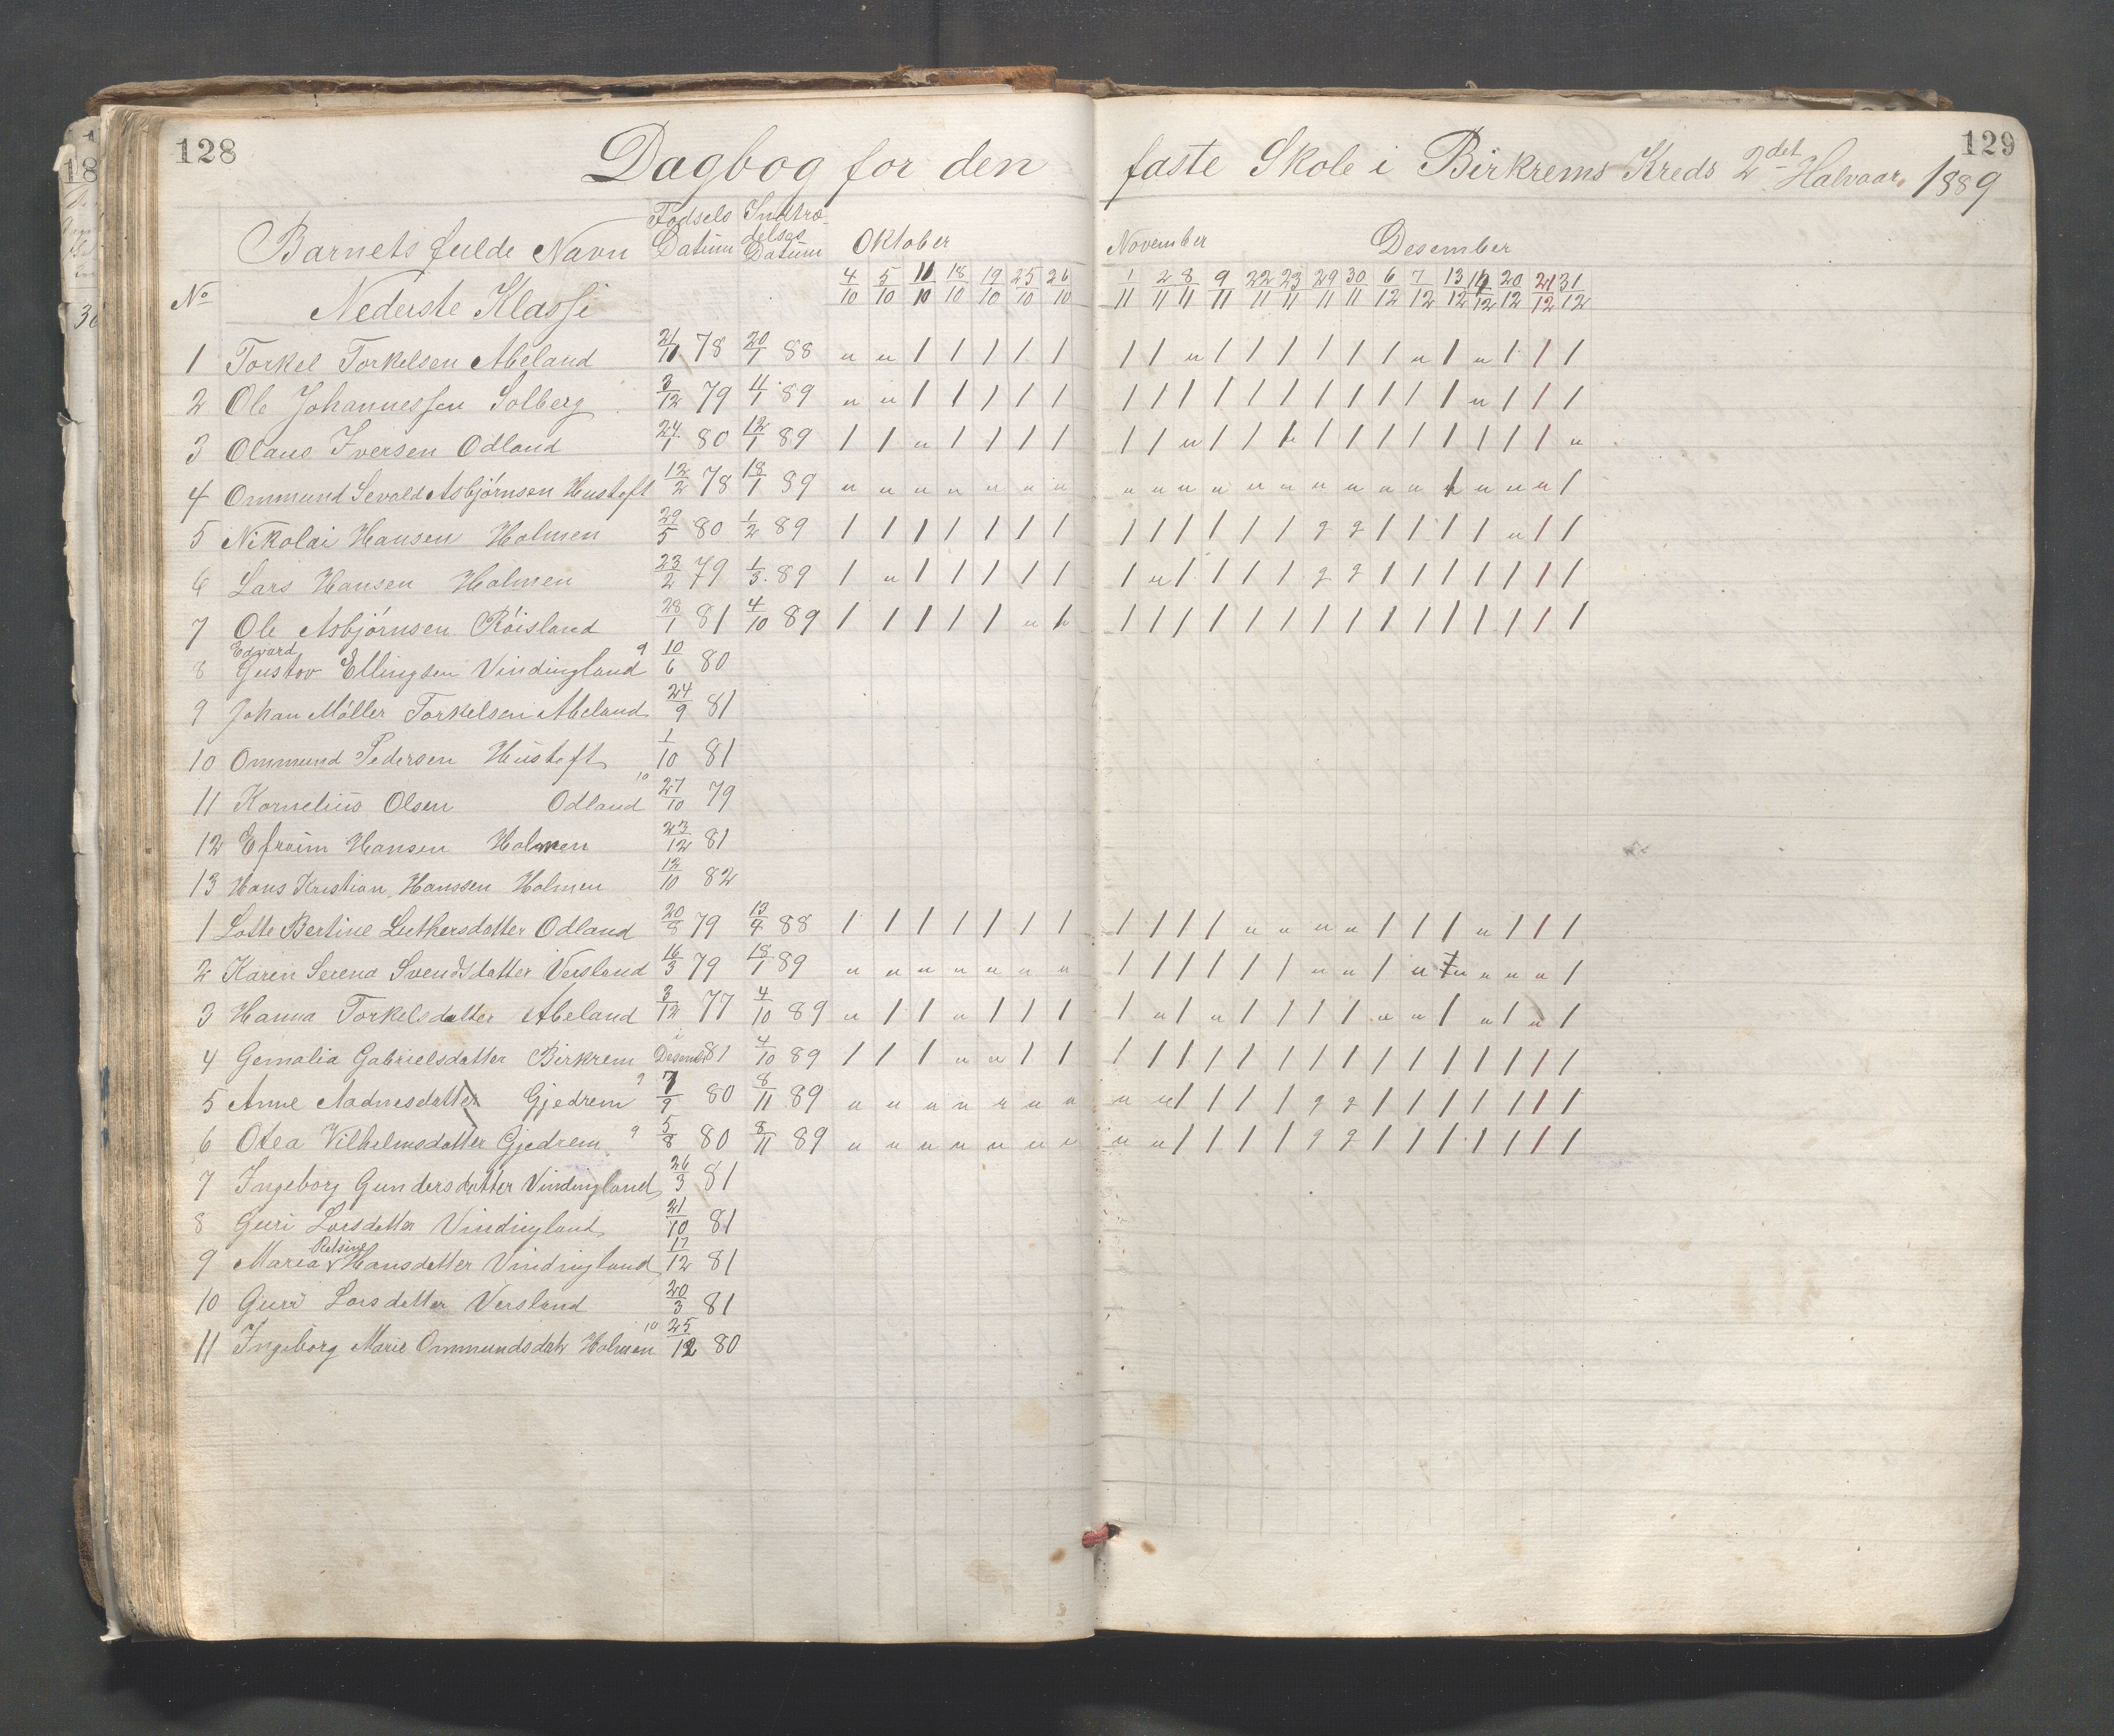 128
129
Dagbog for den faste Skole i Birkrems Kreds 2det Halvaar. 1889
No Barnets fulde Navn Fødsels Datum Indtrædelses Datum Oktober November Desember
Nederste Klasse 4/10 5/10 11/10 18/10 19/10 25/10 26/10 1/11 2/11 8/11 9/11 22/11 23/11 29/11 30/11 6/12 7/12 13/12 14/12 20/12 21/12 31/12
1 Torkel Torkelsen Abeland 78 20/1 88 u u / / / / / / / u / / / / / / u / u / / /
2 Ole Johannessen Solberg 3/12 79 4/1 89 u u / / / / / / / / / / / / / / / / u / / /
3 Olaus Iversen Odland 24/1 80 12/1 89 / / u / / / / / / u / / / / / / / / / / / u
4 Ommund Sevald Asbjørnsen Hustoft 12/2 78 18/1 89 u u u u u u u u u u u u u u u u u / u u u /
5 Nikolai Hansen Holmen 29/5 80 1/2 89 / / / / / / / / / / / / / g g / / / / u / /
6 Lars Hansen Holmen 23/2 79 1/3 89 / u / / / / / / u / / / / g g / / / / / / /
7 Ole Asbjørnsen Røisland 28/1 81 4/10 89 / / / / / u / / / / / / / / / / / / / / / /
8 Edvard Gustav Ellingsen Vindingland 9 10/6 80
9 Johan Møller Torkelsen Abeland 24/9 81
10 Ommund Pedersen Hustoft 1/10 81
11 Kornelius Olsen Odland 10 27/10 79
12 Efraim Hansen Holmen 23/12 81
13 Hans Kristian Hanssen Holmen 12/10 82
1 Lotte Bertine Luthersdatter Odland 20/8 79 13/4 88 / / / / / / / / / / / u u u u / / / u / / /
2 Karen Serena Svendsdatter Versland 16/3 79 18/1 89 u u u u u u u / / / / / / u u / u u u u /
3 Hanna Torkelsdatter Abeland 3/12 77 4/10 89 u / / u / / / / u / u / / / / u u / u / u /
4 Gemalia Gabrielsdatter Birkrem i Desembr 81 4/10 89 / / / u u / / / / / / / / / / / / / / / / /
5 Anne Aadnesdatter Gjedrem 9 7/9 80 8/11 89 u u u u u u u u u / / / / g g / / / / / / /
6 Otea Vilhelmsdatter Gjedrem 9 5/8 80 8/11 89 u u u u u u u u u / / / / g g / / / / / / /
7 Ingeborg Gundersdatter Vindingland 26/3 81
8 Guri Larsdatter Vindingland 21/10 81
9 Maria Retsine Hansdatter Vindingland 17/12 81
10 Guri Larsdatter Versland 20/3 81
11 Ingeborg Marie Ommundsdatr Holmen 10 25/12 80